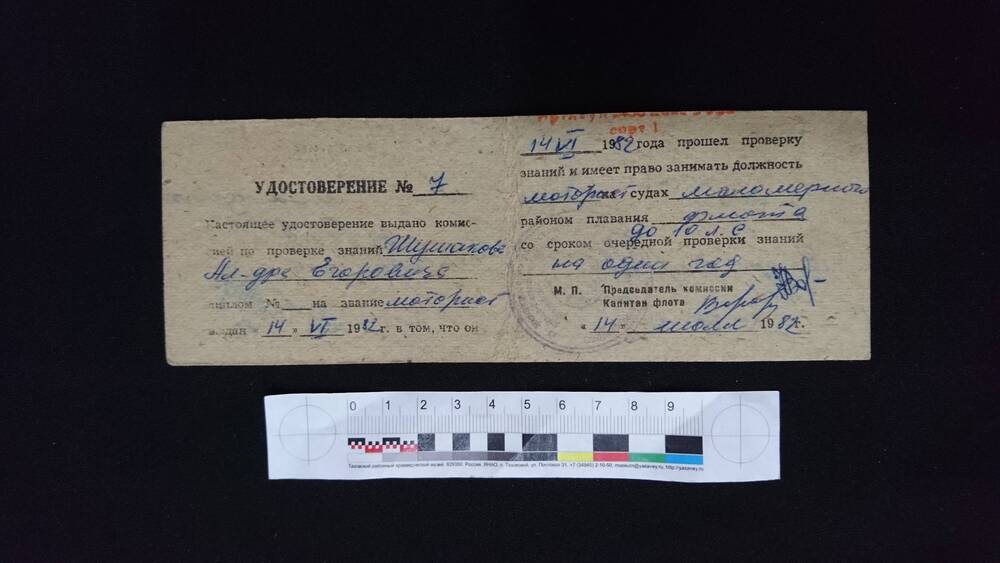 УДОСТОВЕРЕНИЕ № 7
Настоящее удостоверение выдано комис-
сией по проверке знаний Шушакова
Ал-дра Егоровича
диплом № на звание моторист
выдан « 14 » VI 1982 г. в том, что он
сорт 1
14 VI 1982 года прошел проверку
знаний и имеет право занимать должность
моторист на судах маломерного
районом плавания флота
до 10 л.с
со сроком очередной проверки знаний
на один год
М. П. Председатель комиссии
Капитан флота
« 14 » июля 1982 г.
0 1 2 3 4 5 6 7 8 9
Тазовский районный краеведческий музей 629350, Россия, ЯНАО, п. Тазовский, ул. Почтовая 31, +7 (34940) 2-10-50, museum@yasavey.ru, http://yasavey.ru